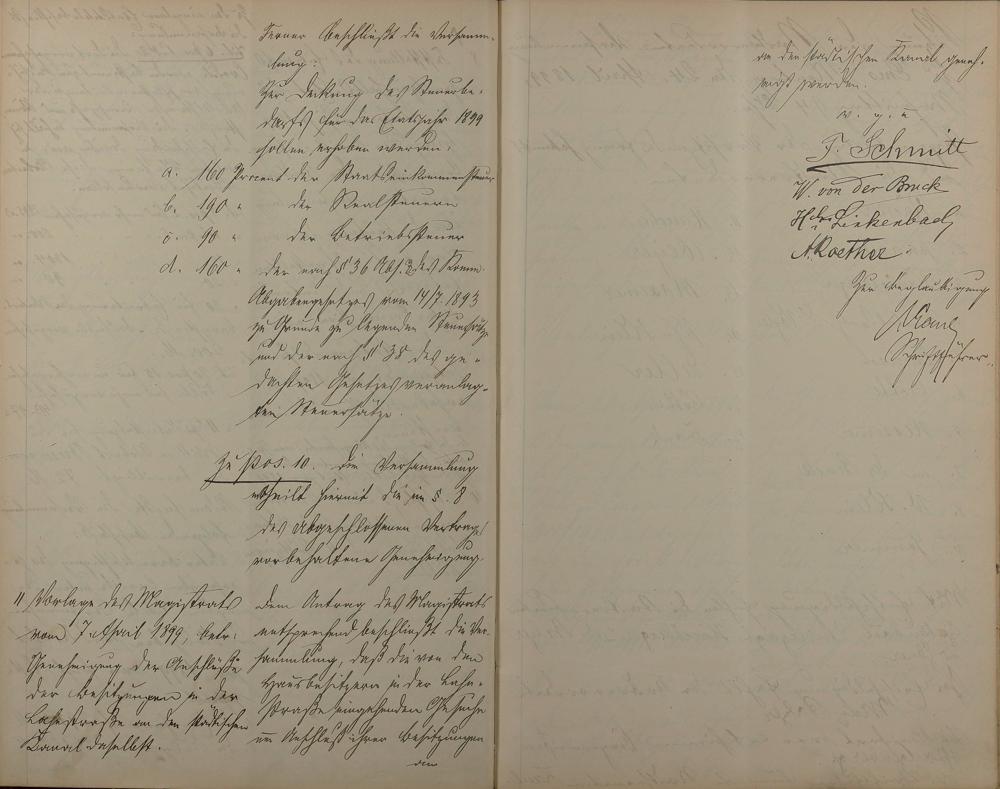 Ferner beschließt die Versamm-
lung:
Zur Deckung des Steuerbe-
darfs für das Etatsjahr 1899
sollen erhoben werden:
a. 160 Procent der Staatseinkommensteuer
b. 190 " der Realsteuern
c. 90 " der Betriebssteuer
d. 160 " der nach § 36 Abs. 2 des Komm.
Abgabengesetzes vom 14/7 1893
zu Grunde zu legenden Steuersätze
und der nach § 38 des ge-
dachten Gesetzes veranlag-
ten Steuersätze.
Zu Pos. 10. Die Versammlung
ertheilt hiermit die im § 8
des abgeschlossenen Vertrages
vorbehaltene Genehmigung.
11 Vorlage des Magistrats
vom 7. April 1899, betr.
Genehmigung der Anschlüsse
der Besitzungen in der
Lahnstraße an den städtischen
Kanal daselbst.
Dem Antrag des Magistrats
entsprechend beschließt die Ver-
sammlung, daß die von den
Hausbesitzern in der Lahn-
straße eingehenden Gesuche
um Anschluß ihrer Besitzungen
an
an den städtischen Kanal geneh-
migt werden.
v. g. u.
F. Schmitt
W. von der Bruck
Linkenbach
A. Roether.
Zur Beglaubigung
Schriftführer.